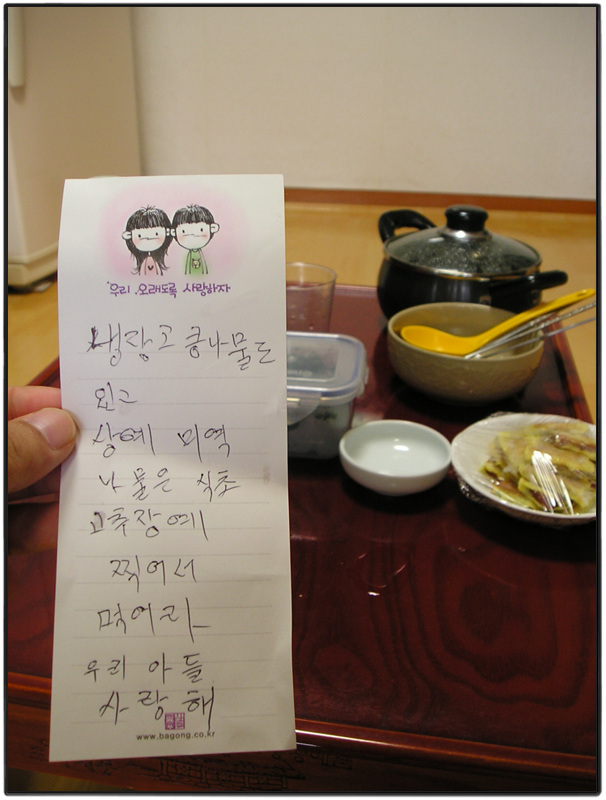 우리, 오래도록 사랑하자
냉장고 콩나물도
있고
상에 미역
나물은 식초
고추장에
찍어서
먹어라
우리 아들
사랑해
www.bagong.co.kr